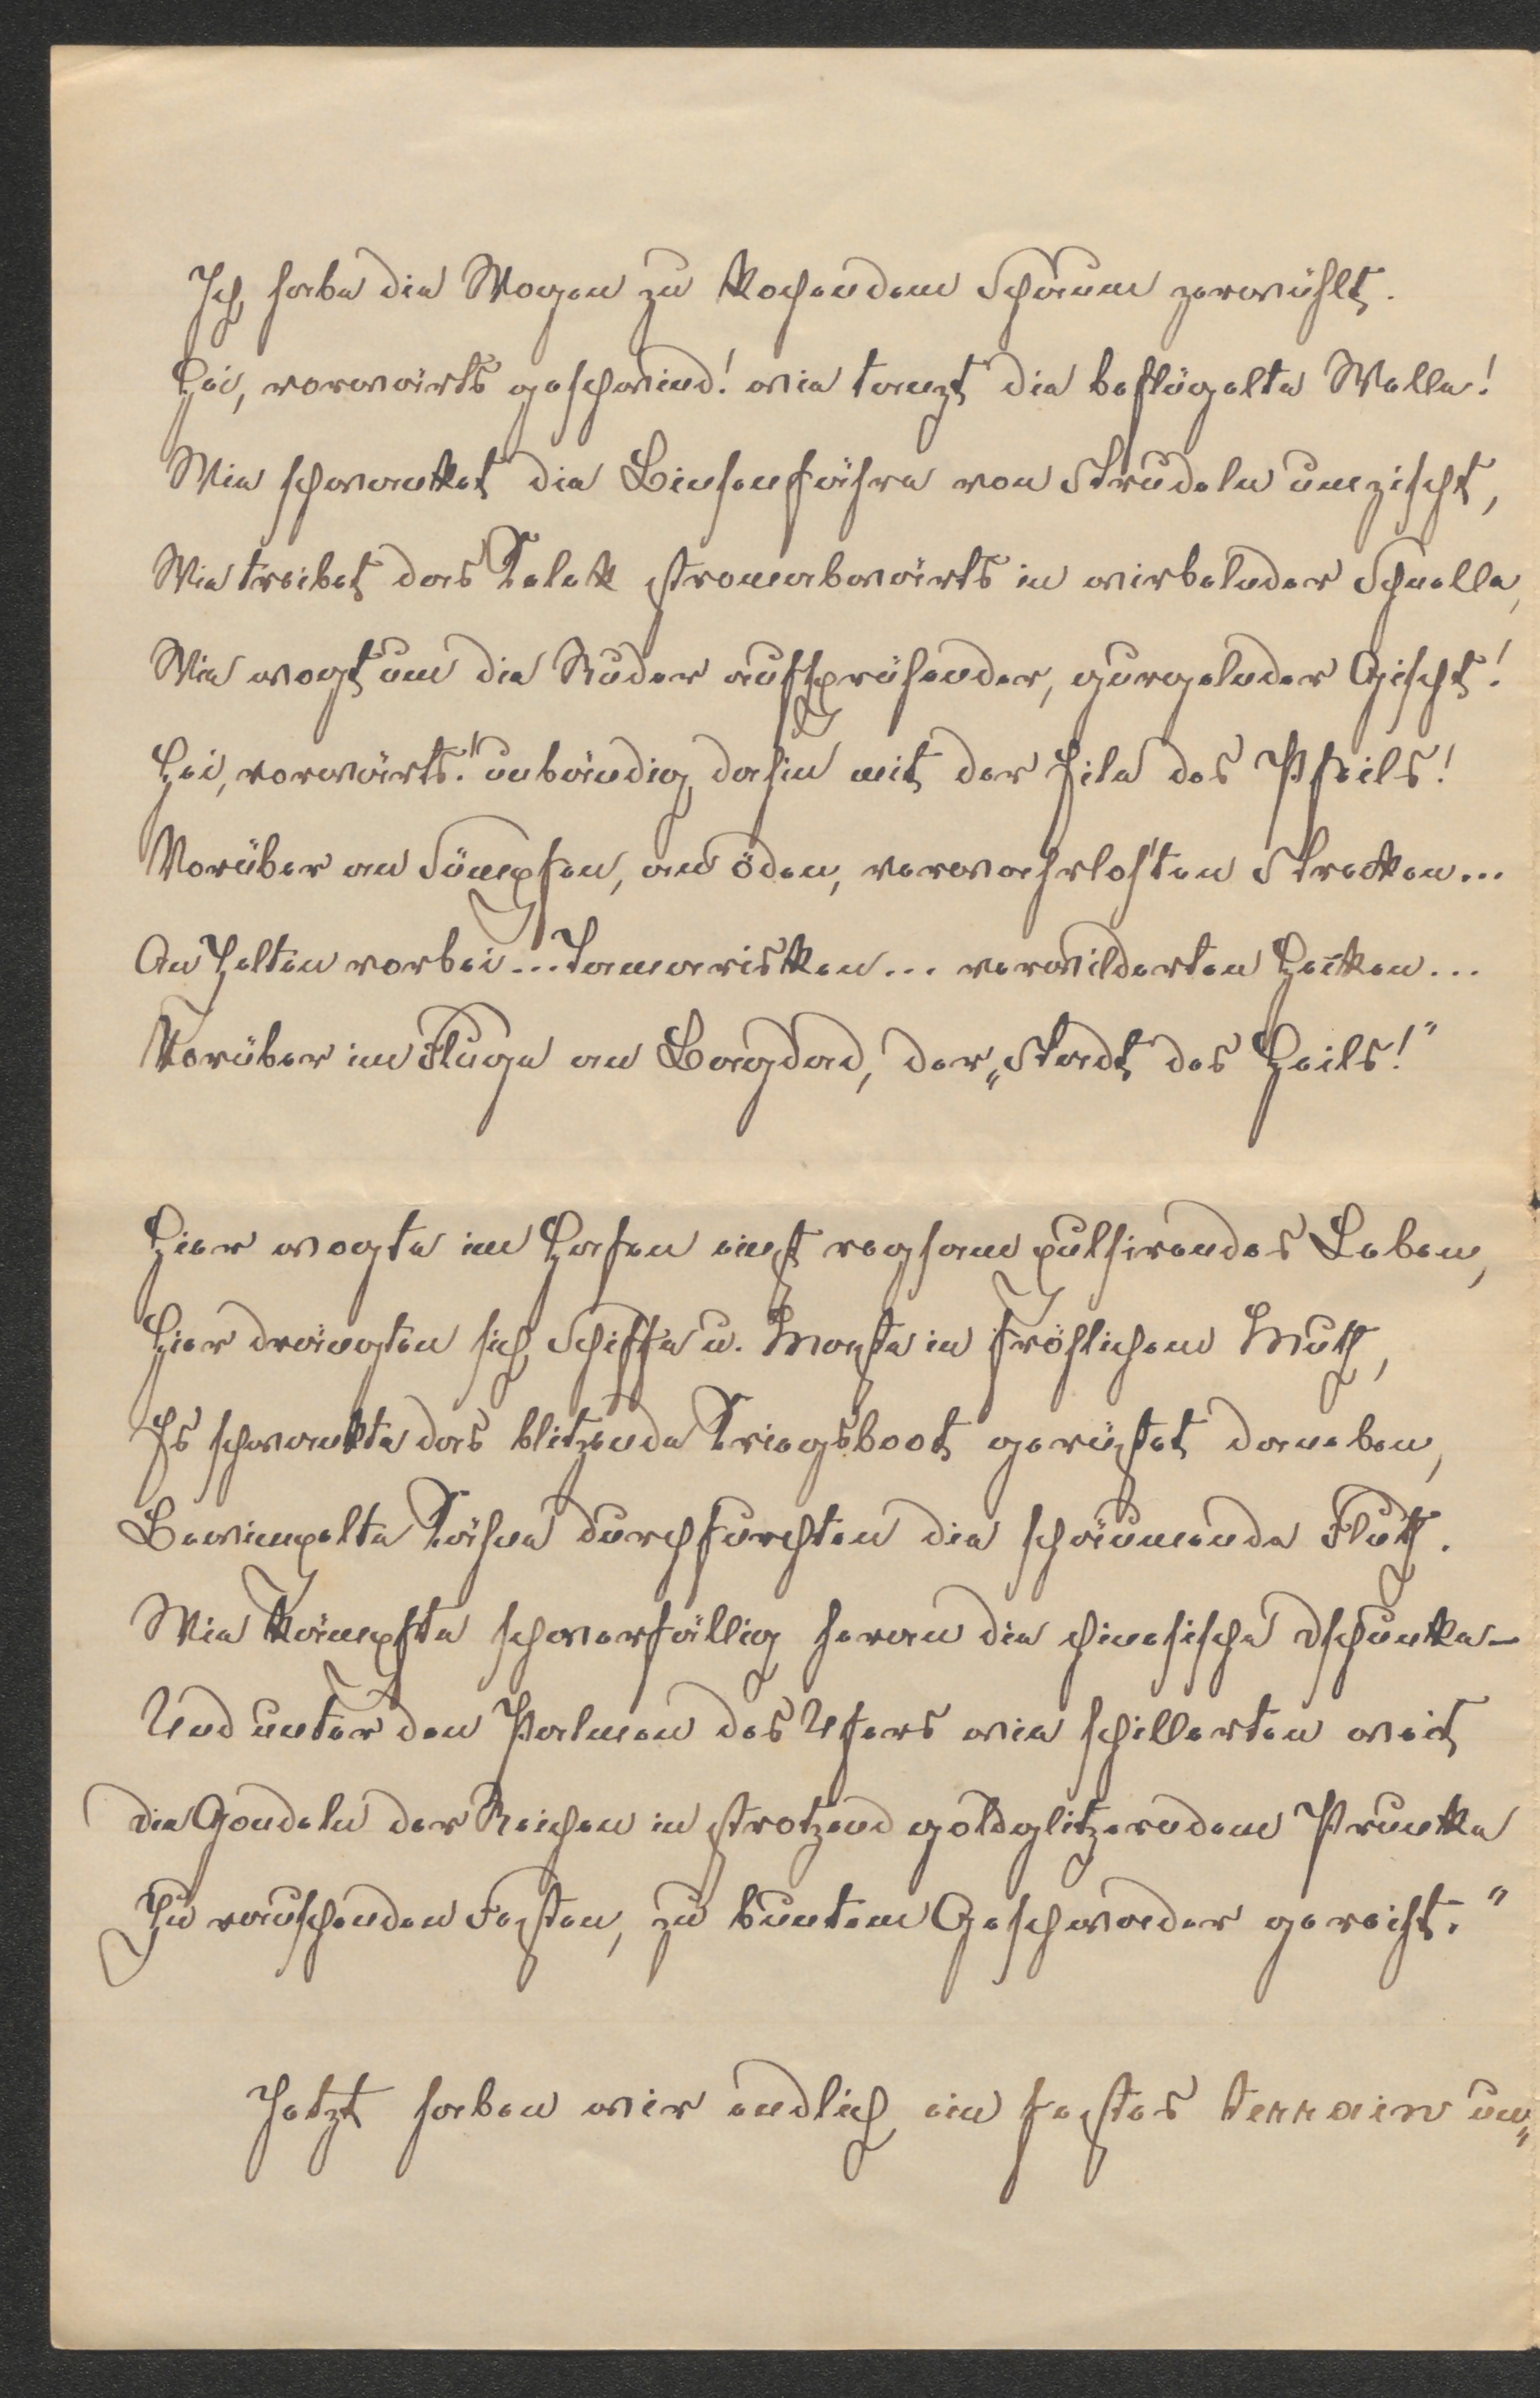 Ich habe die Wogen zu kochendem Schaum zerwühlt.
Hei, vorwärts geschwind! wie tanzt die beflügelte Welle!
Wie schwanket die Binsenfähre von Strudeln umzischt,
Wie treibet das Kelek stromabwärts in wirbelnder Schnelle,
Wie wogt um die Ruder aufsprühender, gurgelnder Gischt!
Hei, vorwärts! unbändig dahin mit der Eile des Pfeils!
Vorüber an Sümpfen, an öden, verwahrlos'ten Strecken...
An Zelten vorbei... Tamarisken... verwilderten Hecken...
Vorüber im Fluge an Bagdad, der „Stadt des Heils!"
Hier wogte im Hafen einst regsam pulsirendes Leben,
Hier drängten sich Schiffe u. Maste in fröhlichem Muth,
Es schwankte das blitzende Kriegsboot gerüstet daneben,
Bewimpelte Kähne durchfurchten die schäumende Fluth.
Wie kämpfte schwerfällig heran die chinesische Dschunke –
Und unter den Palmen des Ufers wie schillerten weit
Die Gondeln der Reichen in strotzend goldglitzerndem Prunke
Zu rauschenden Festen, zu buntem Geschwader gereiht."
Jetzt haben wir endlich ein festes terrain un„